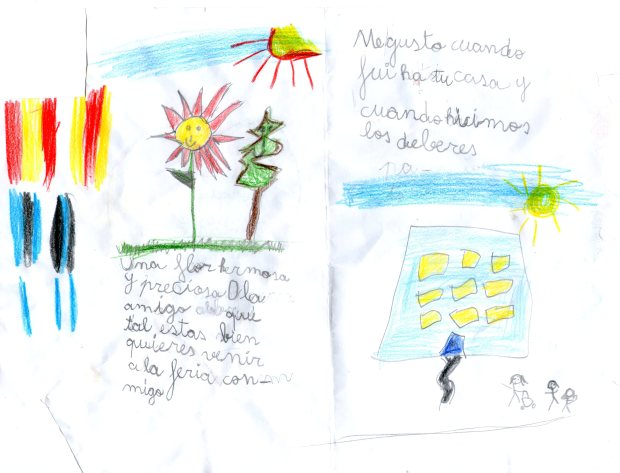 Una flor hermosa
y preciosa Ola
amigo que
tal estas bien
quieres venir
a la feria con-m
migo
Me gusto cuando
fui ha tu casa y
cuando hicimos
los deberes
pa